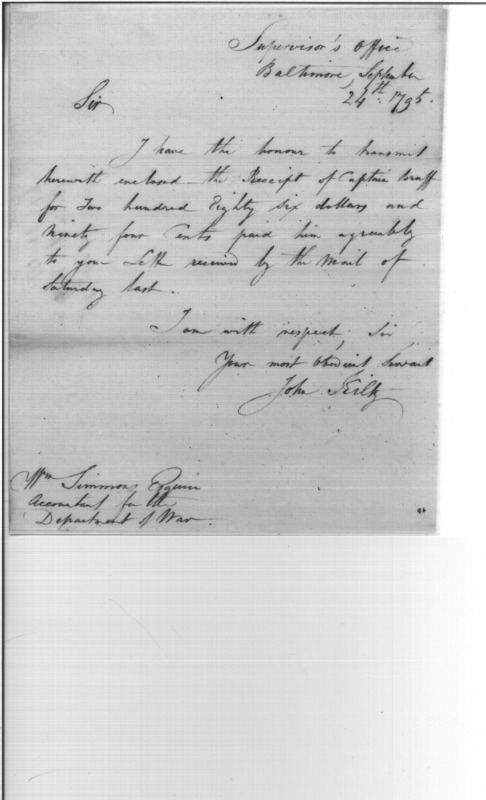 Supervisor's Office
Baltimore, September
24th. 1795.
Sir
I have the honour to transmit
herewith enclosed the Receipt of Captain Bruff
for Two hundred Eighty Six dollars and
Ninety four Cents paid him agreeably
to your received by the Mail of
Saturday last.
I am with respect, Sir
Your most Obedient Servant
John Kilty
Wm Simmons Esquire
Accountant for the
Department of War.